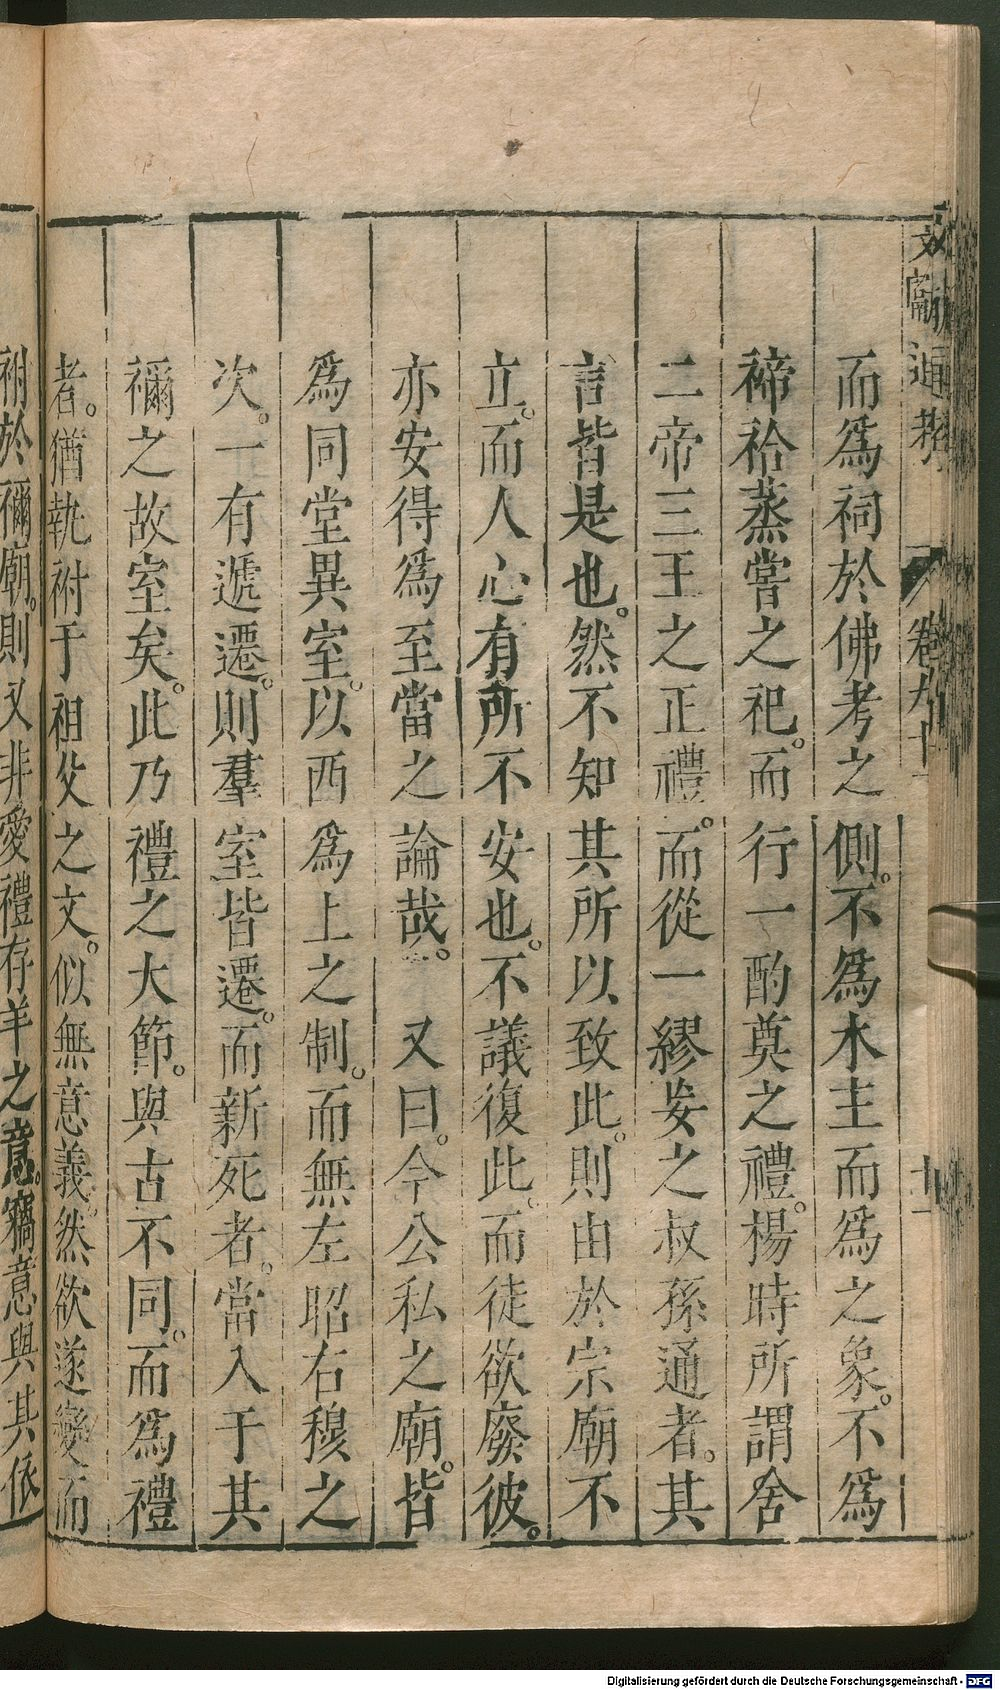 文獻通考 卷九十一
而爲祠於佛考之側。不爲木主而爲之象。不爲
禘祫蒸甞之祀。而行一酌奠之禮。楊時所謂舍
二帝三王之正禮。而從一繆妄之叔孫通者。其
言皆是也。然不知其所以致此。則由於宗廟不
立。而人心有所不安也。不議復此。而徒欲廢彼。
亦安得爲至當之論哉。 又曰。今公私之廟。皆
爲同堂異室。以西爲上之制。而無左昭右穆之
次。一有遞遷。則羣室皆遷。而新死者。當入于其
禰之故室矣。此乃禮之大節。與古不同。而爲禮
者。猶執祔于祖父之文。似無意義。然欲遂變而
祔於禰廟。則又非愛禮存羊之意。竊意與其依
Digitalisierung gefördert durch die Deutsche Forschungsgemeinschaft - DFG